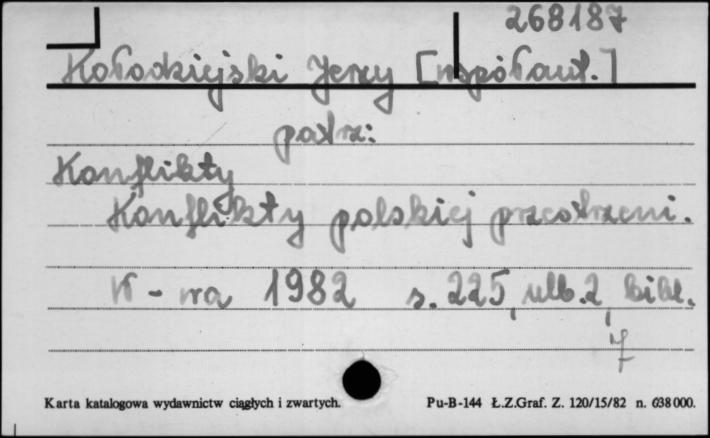 268187
Kołodziejski Jerzy [współaut.]
patrz:
Konflikty
Konflikty polskiej przestrzeni.
W-wa 1982 s. 225, nlb. 2, bibl.
7
Karta katalogowa wydawnictw ciągłych i zwartych. Pu-B-144 Ł.Z.Graf. Z. 120/15/82 n. 638000.